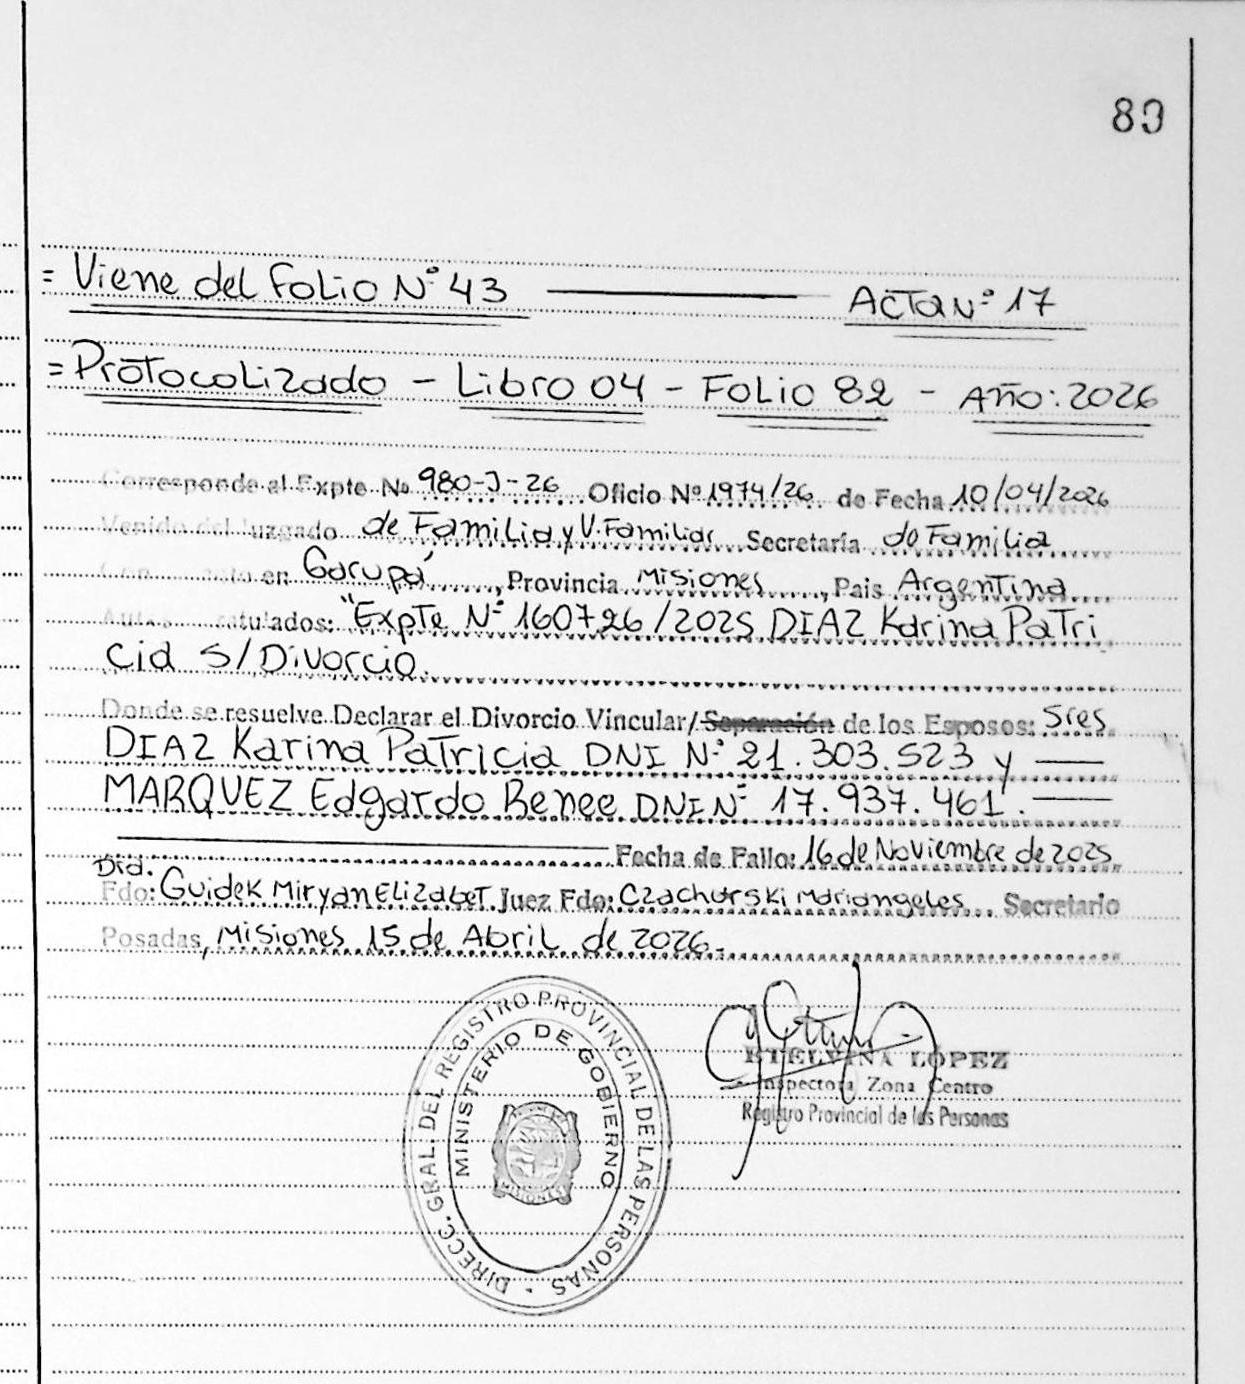 80
= Viene del Folio N° 43 ——— Acta N° 17
= Protocolizado - Libro 04 - Folio 82 - Año: 2026
Corresponde al Expte Nº 980-J-26 Oficio Nº 1974/26 de Fecha 10/04/2026
Venido del Juzgado de Familia y V. Familiar Secretaría de Familia
en Garupá, Provincia Misiones, Pais Argentina
"Expte N° 160726/2025 DIAZ Karina Patri
cia S/Divorcio.
Donde se resuelve Declarar el Divorcio Vincular/Separación de los Esposos: Sres
DIAZ Karina Patricia DNI N° 21.303.523 y ——
MARQUEZ Edgardo Renee DNI N° 17.937.461. ——
Fecha de Fallo: 16 de Noviembre de 2025
Dra.
Fdo: Guidek Miryan Elizabet Juez Fdo: Czachurski Mariangeles Secretario
Posadas, Misiones 15 de Abril de 2026.-
DIRECC. GRAL. DEL REGISTRO PROVINCIAL DE LAS PERSONAS
MINISTERIO DE GOBIERNO
MISIONES
ETELVINA LÓPEZ
Inspectora Zona Centro
Registro Provincial de las Personas